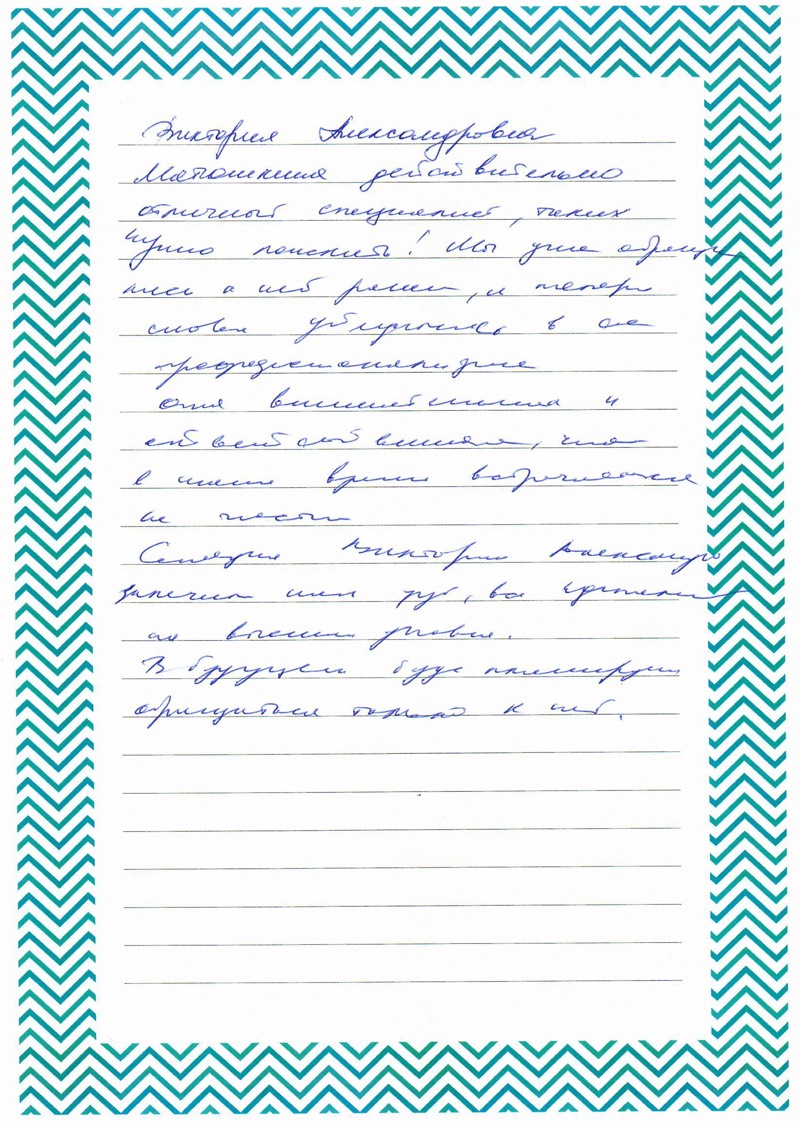 Виктория Александровна
Матюшкина действительно
отличный специалист, таких
нужно поискать! Мы уже обраща
лись к ней ранее, и теперь
снова убедились в ее
профессионализме
Она внимательна и
в наше время встречается
не часто
Сегодня Виктория Александр
зуб, все сделано
на высшем уровне.
В будущем буду планирую
обращаться только к ней.